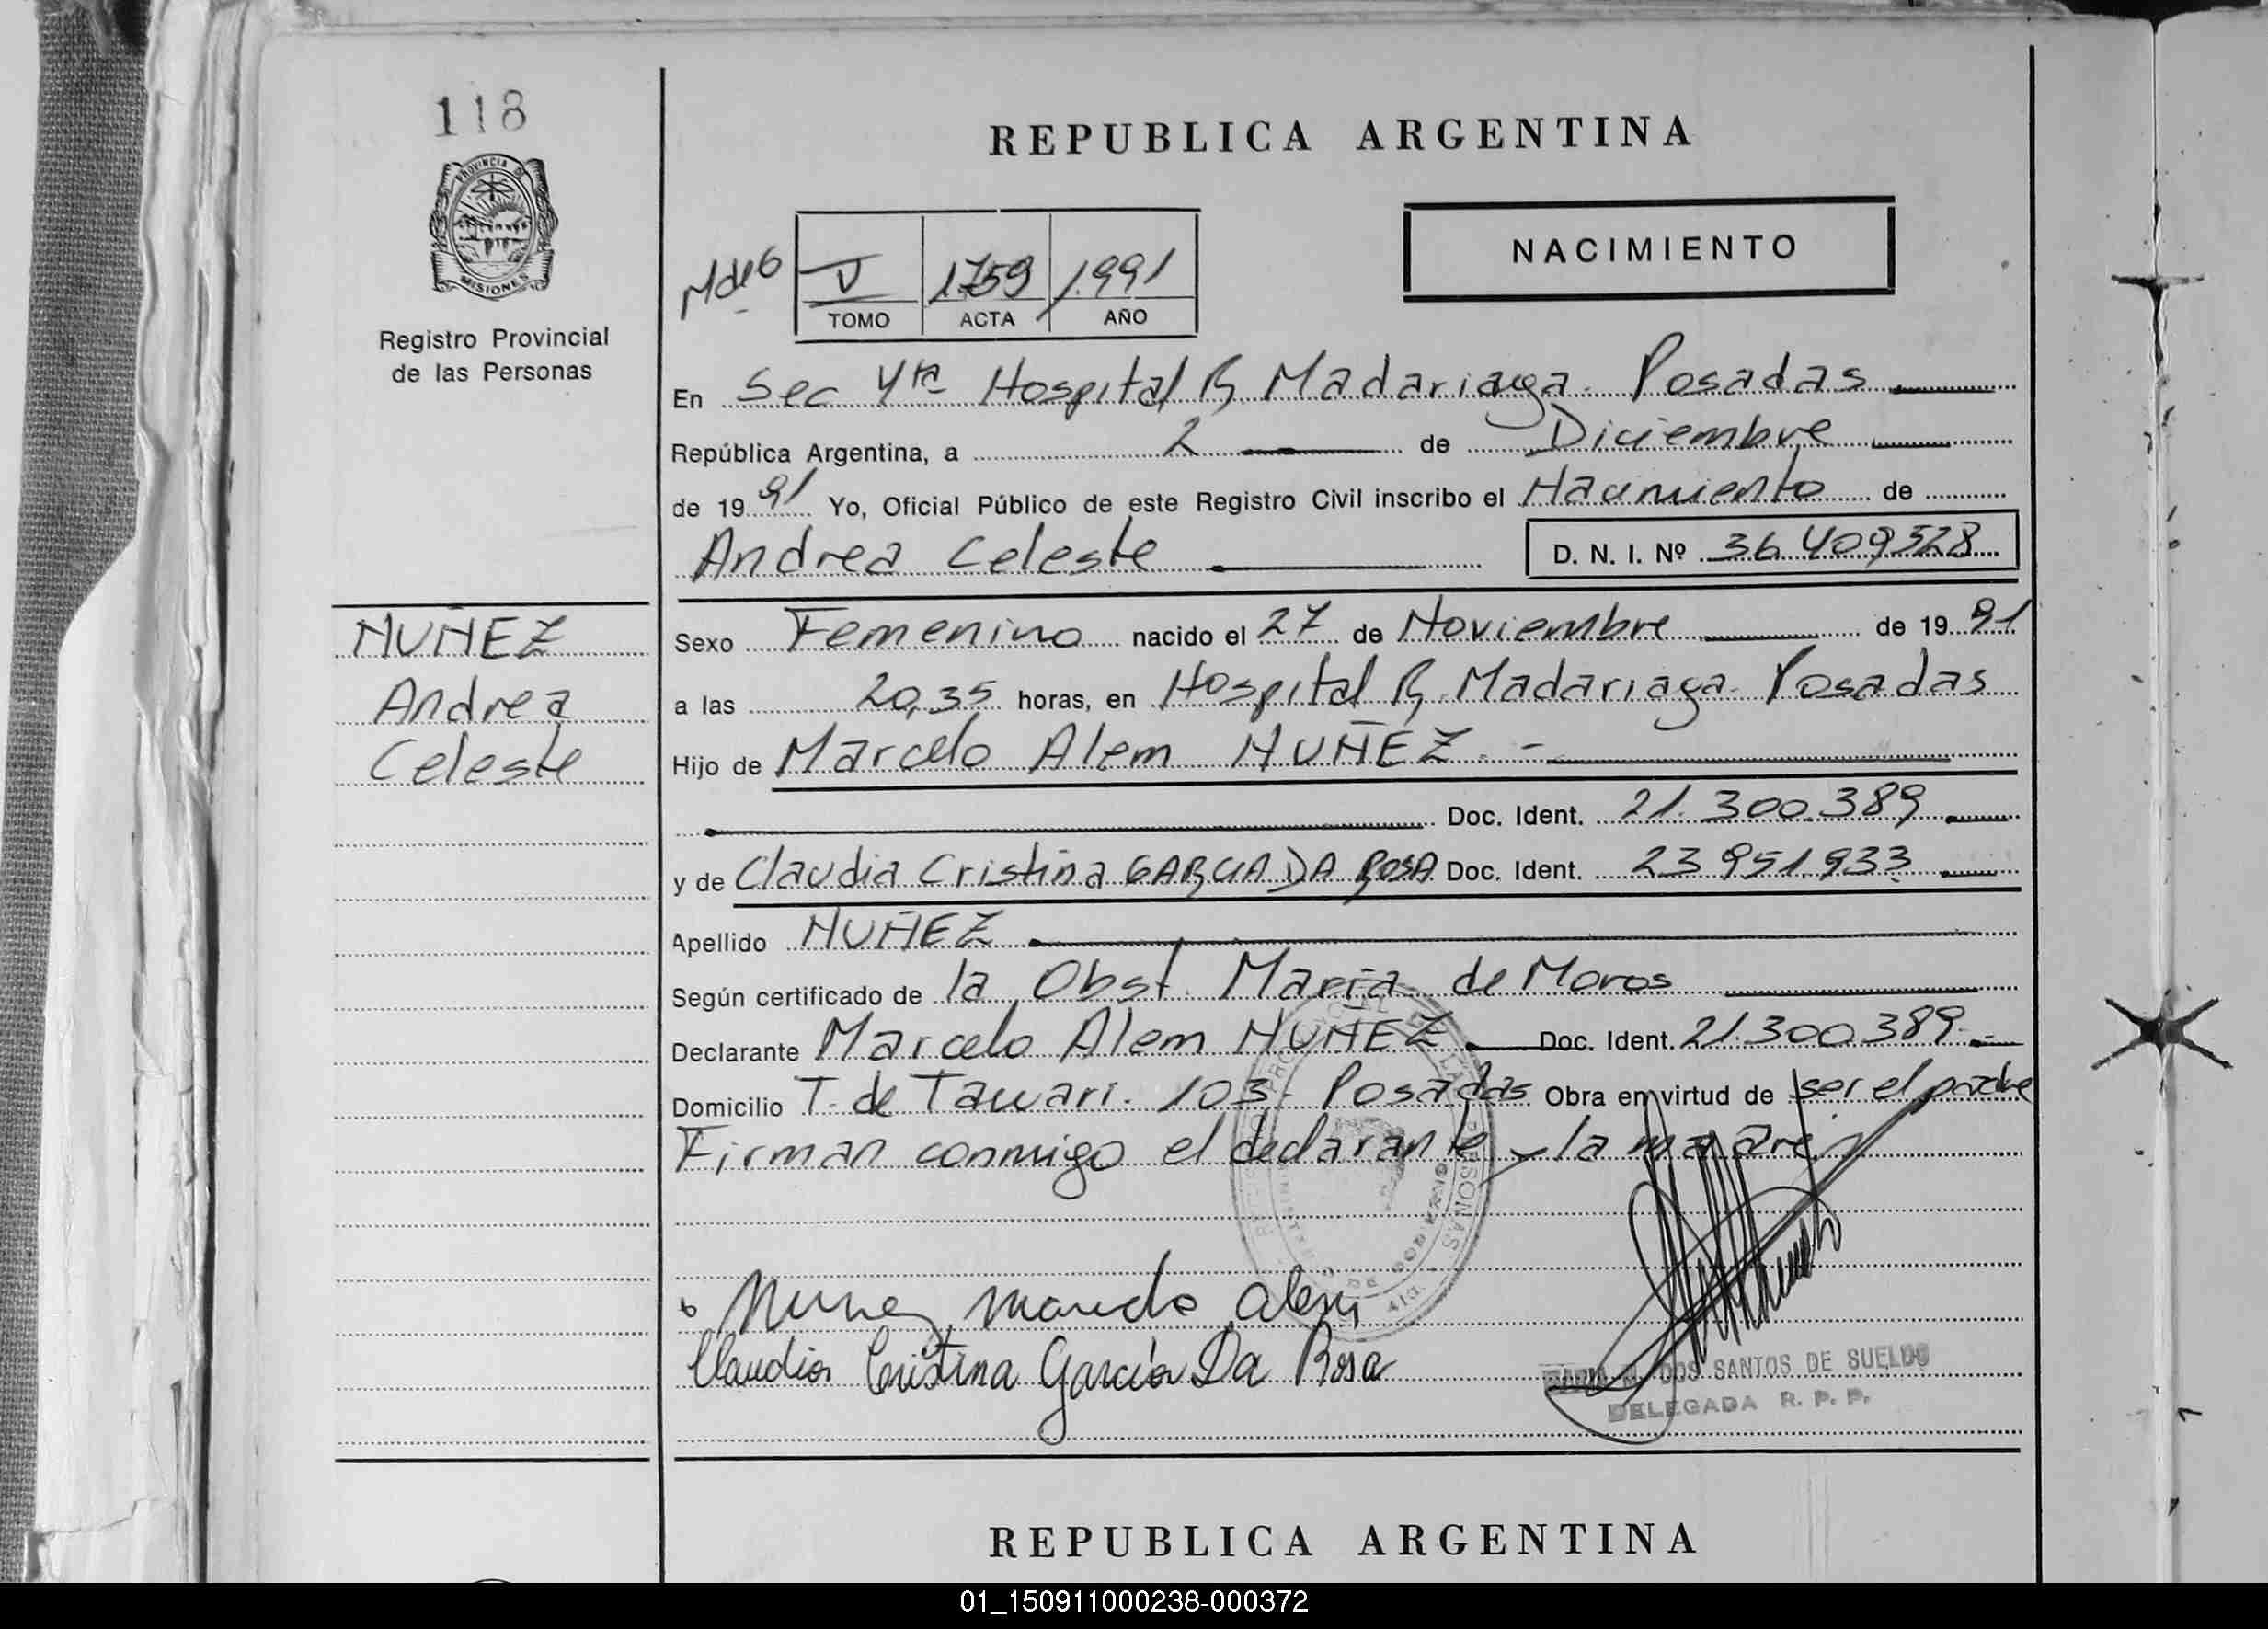 118
PROVINCIA DE
MISIONES
Registro Provincial
de las Personas
NUÑEZ
Andrea
Celeste
REPUBLICA ARGENTINA
NACIMIENTO
V 1759 1991
TOMO ACTA AÑO
En Sec 4ta Hospital R. Madariaga. Posadas
República Argentina, a 2 de Diciembre
de 1991 Yo, Oficial Público de este Registro Civil inscribo el Nacimiento de
Andrea Celeste D. N. I. Nº 36.409528
Sexo Femenino nacido el 27 de Noviembre de 1991
a las 20,35 horas, en Hospital R. Madariaga. Posadas
Hijo de Marcelo Alem NUÑEZ.-
Doc. Ident. 21.300.389
y de Claudia Cristina GARCIA DA ROSA Doc. Ident. 23951.933
Apellido NUÑEZ
Según certificado de la Obst. María de Moros
Declarante Marcelo Alem NUÑEZ Doc. Ident. 21.300389.-
Domicilio T. de Tacuari. 103. Posadas Obra en virtud de ser el padre
Firman conmigo el declarante y la madre
Nuñez marcelo alem
Claudia Cristina García Da Rosa
DOS SANTOS DE SUELDO
DELEGADA R. P. P.
REPUBLICA ARGENTINA
01_150911000238-000372